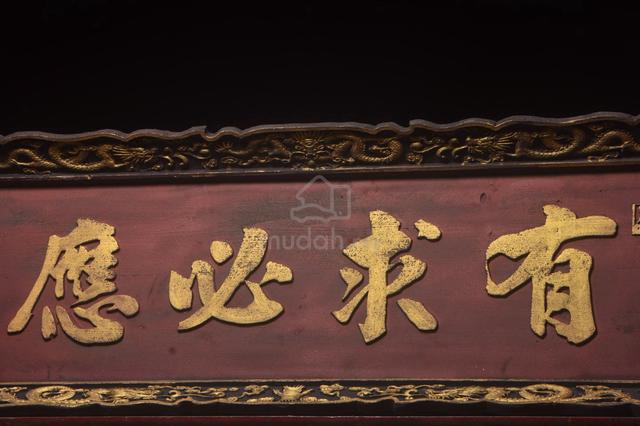 有求必應
mudah